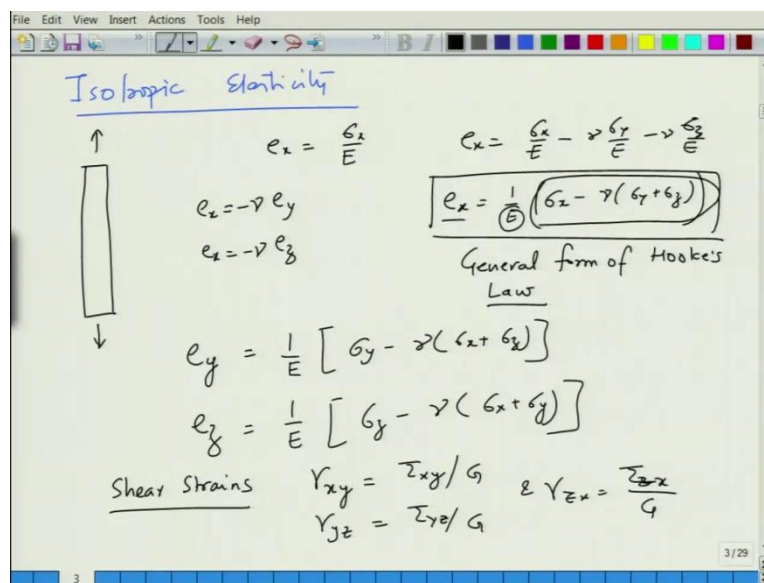 File Edit View Insert Actions Tools Help
B I
Isotropic Elasticity
e_x = σ_x/E
e_x = σ_x/E - ν σ_y/E - ν σ_z/E
e_x = -ν e_y
e_x = 1/E (σ_x - ν(σ_y+σ_z))
e_x = -ν e_z
General form of Hooke's
Law
e_y = 1/E [σ_y - ν(σ_x+σ_z)]
e_z = 1/E [σ_z - ν(σ_x+σ_y)]
Shear Strains
γ_xy = τ_xy/G
& γ_zx = τ_zx/G
γ_yz = τ_yz/G
3/29
3